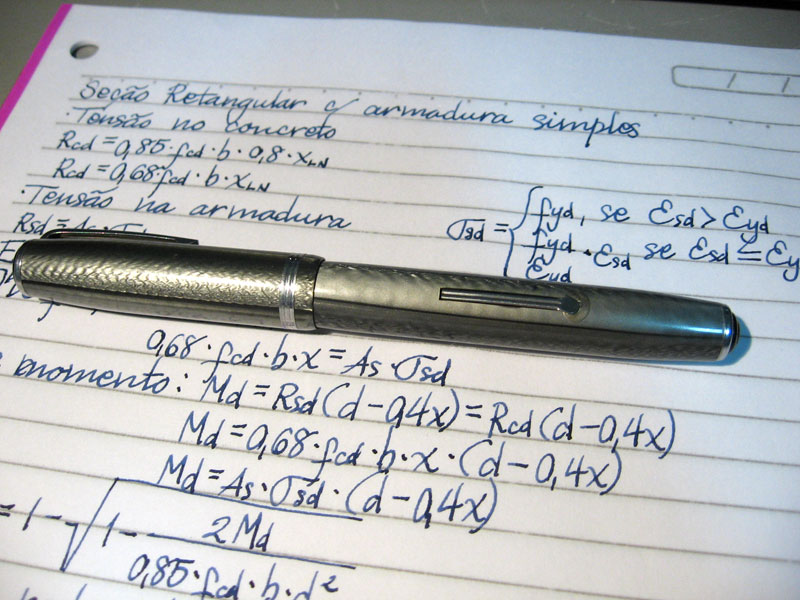 Seção Retangular c/ armadura simples
· Tensão no concreto
Rcd = 0,85 · fcd · b · 0,8 · xLN
Rcd = 0,68 · fcd · b · xLN
· Tensão na armadura
Rsd = As ·
σsd = { fyd, se εsd > εyd
fyd/εyd · εsd se εsd ≤ εy
0,68 · fcd · b · x = As σsd
momento: Md = Rsd (d - 0,4x) = Rcd (d - 0,4x)
Md = 0,68 · fcd · b · x · (d - 0,4x)
Md = As · σsd · (d - 0,4x)
= 1 - √(1 - 2Md / 0,85 · fcd · b · d²)